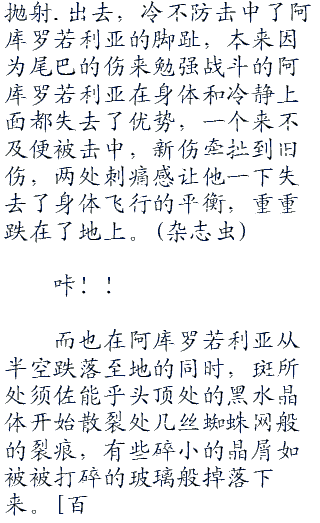 抛射.出去，冷不防击中了阿
库罗若利亚的脚趾，本来因
为尾巴的伤来勉强战斗的阿
库罗若利亚在身体和冷静上
面都失去了优势，一个来不
及便被击中，新伤牵扯到旧
伤，两处刺痛感让他一下失
去了身体飞行的平衡，重重
跌在了地上。(杂志虫)
咔！！
而也在阿库罗若利亚从
半空跌落至地的同时，斑所
处须佐能乎头顶处的黑水晶
体开始散裂处几丝蜘蛛网般
的裂痕，有些碎小的晶屑如
被被打碎的玻璃般掉落下
来。[百